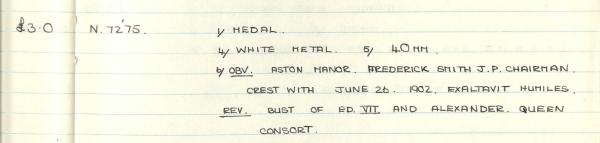 £3.0 N.72'75. 1/ MEDAL.
4/ WHITE METAL. 5/ 40MM.
6/ OBV. ASTON MANOR. FREDERICK SMITH J.P. CHAIRMAN.
CREST WITH JUNE 26. 1902. EXALTAVIT HUMILES.
REV. BUST OF ED. VII AND ALEXANDER. QUEEN
CONSORT.